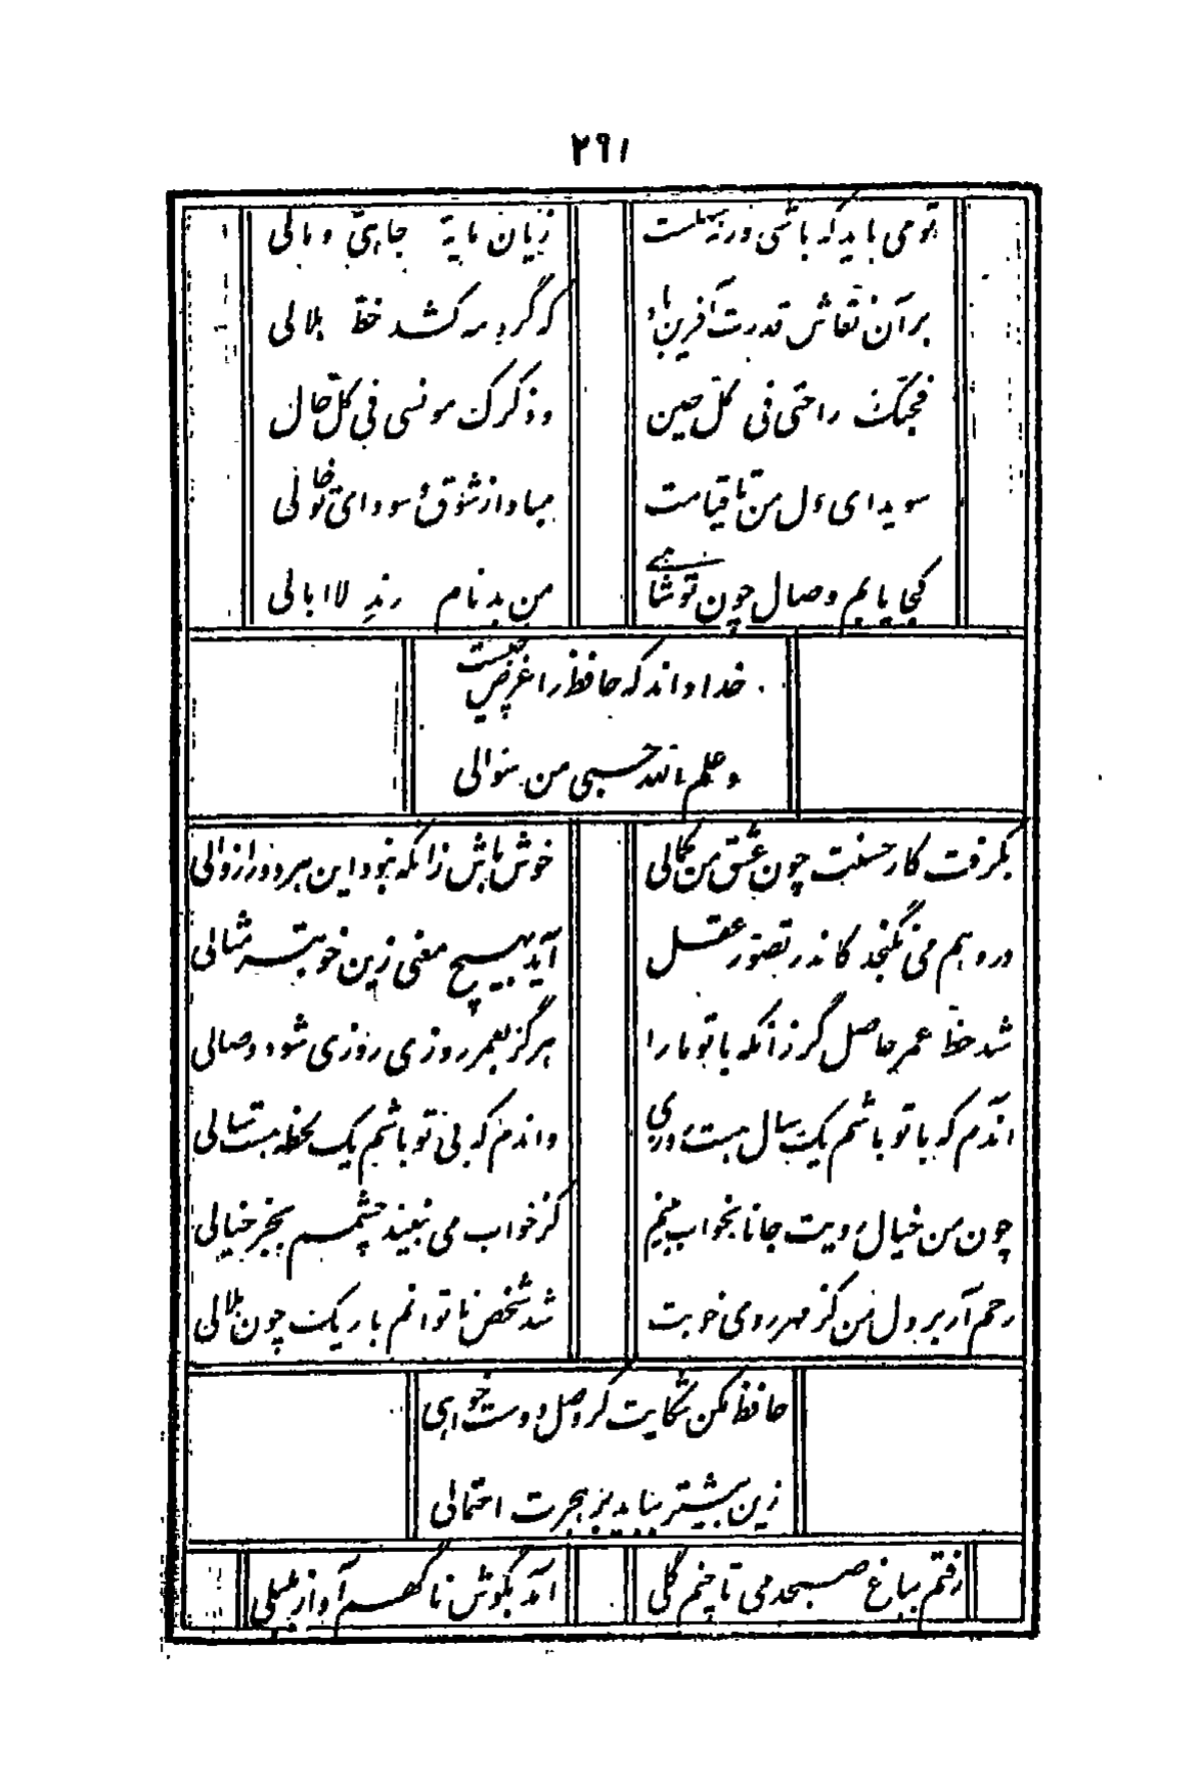 ۲۹۱
تو می باید که باشی ورنه سهلست
زیان مایهٔ جاهی و مالی
بر آن نقاش قدرت آفرین باد
که گرد مه کشد خط هلالی
فحبک راحتی فی کل حین
وذکرک مونسی فی کل حال
سویدای دل من تا قیامت
مباد از شوق سودای تو خالی
کجا یابم وصال چون تو شاهی
من بدنام رند لاابالی
خدا داند که حافظ را غرض چیست
وعلم الله حسبی من سوالی
بگرفت کار حسنت چون عشق من کمالی
خوش باش زانکه نبود این هر دو را زوالی
در وهم می نگنجد کاندر تصور عقل
آید بهیچ معنی زین خوبتر مثالی
شد حظ عمر حاصل گر زانکه با تو ما را
هرگز بعمر روزی روزی شود وصالی
آندم که با تو باشم یک سال هست روزی
واندم که بی تو باشم یک لحظه هست سالی
چون من خیال رویت جانا بخواب بینم
کز خواب می نبیند چشمم بجز خیالی
رحم آر بر دل من کز مهر روی خوبت
شد شخص ناتوانم باریک چون هلالی
حافظ مکن شکایت گر وصل دوست خواهی
زین بیشتر بباید بر هجرت احتمالی
رفتم بباغ صبحدمی تا چنم گلی
آمد بگوش ناگهم آواز بلبلی